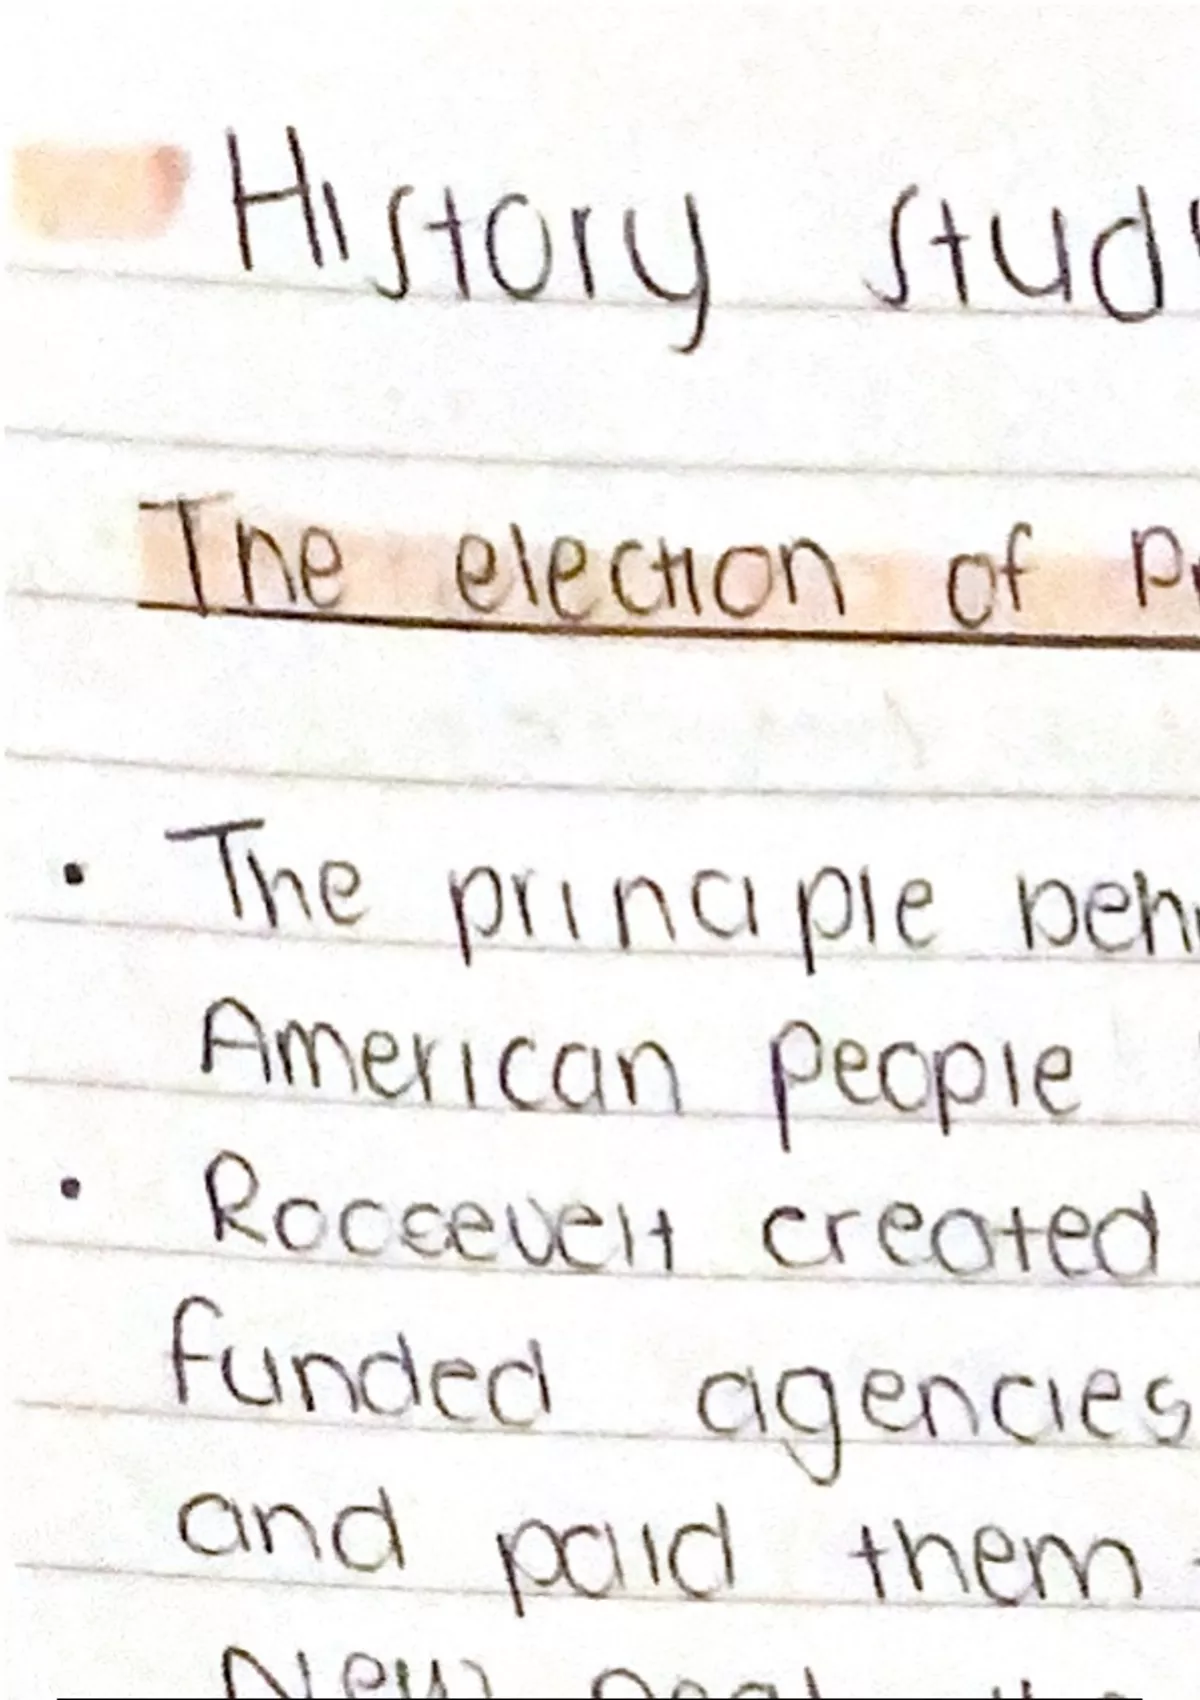 History stud
The election of Pr
• The principle beh
American people
• Roosevelt created
funded agencies
and paid them
New Deal